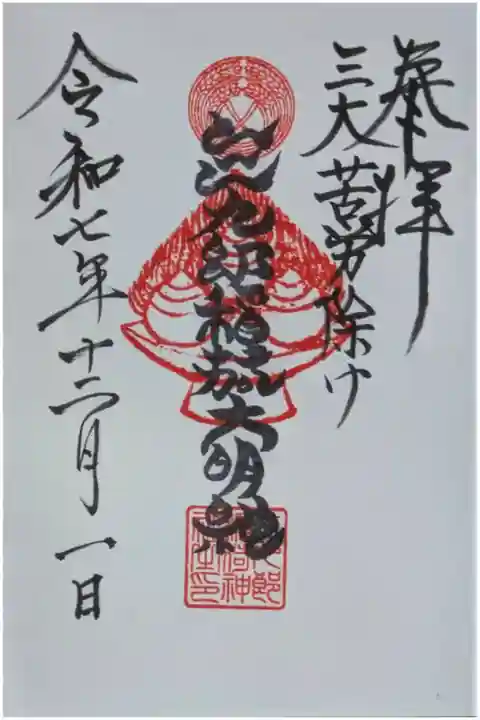 奉拝
三大苦労除け
九郎稲荷大明神
令和七年十二月一日